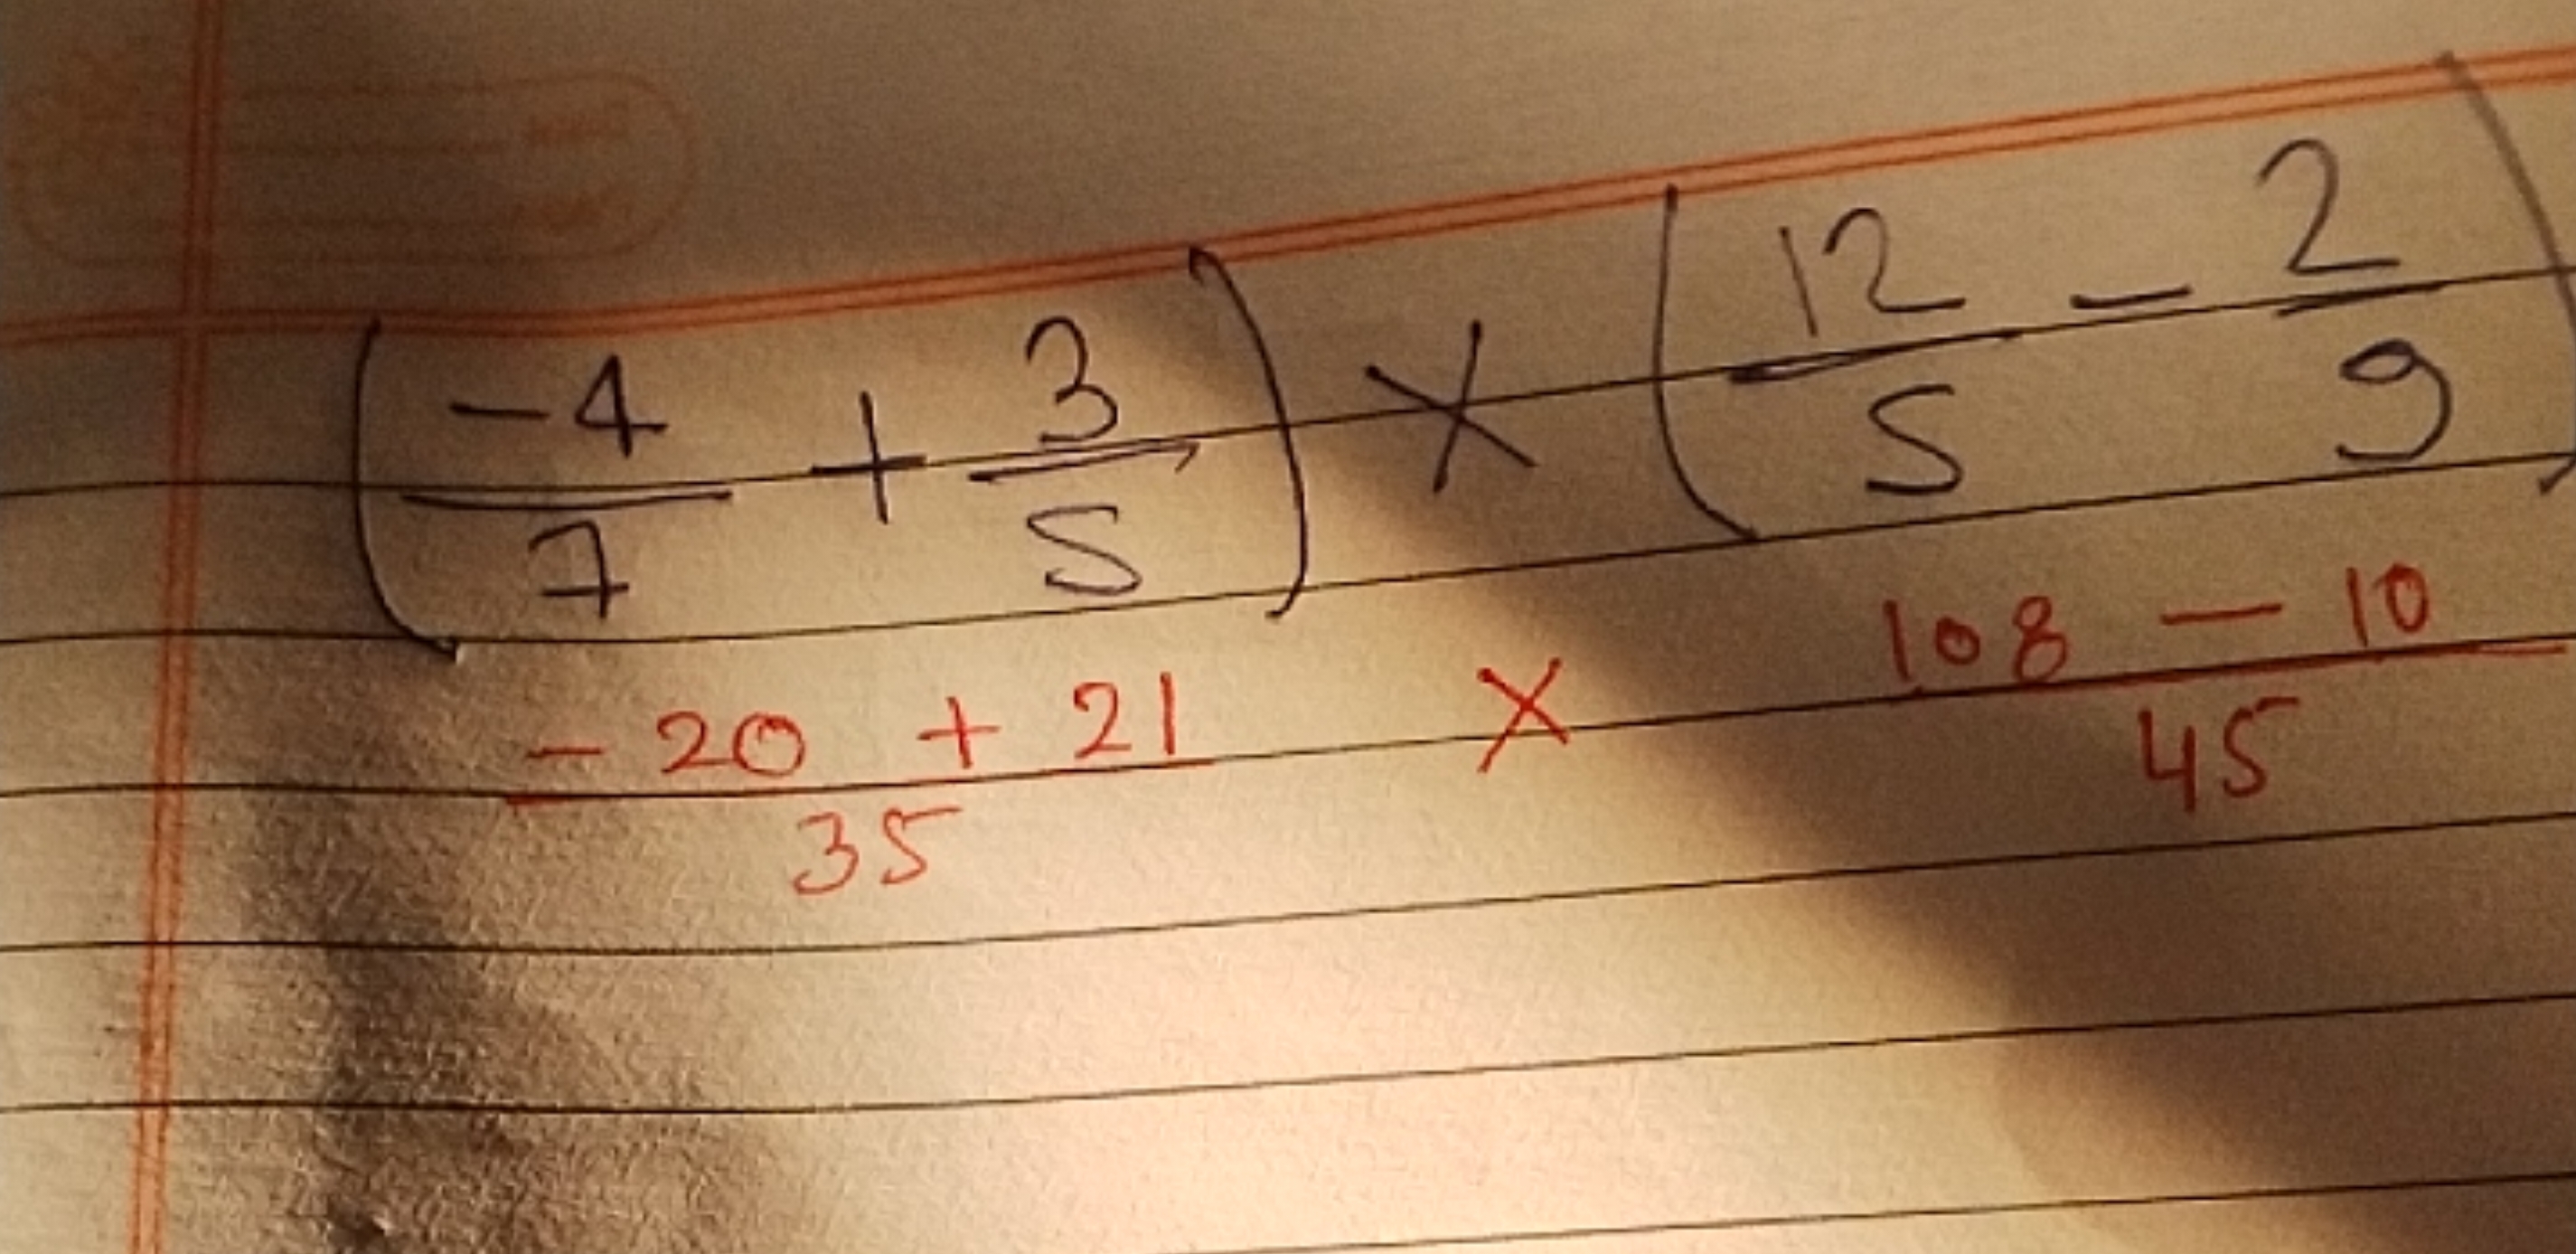 (-4/7 + 3/5) × (12/5 - 2/9)
-20 + 21/35 × 108 - 10/45